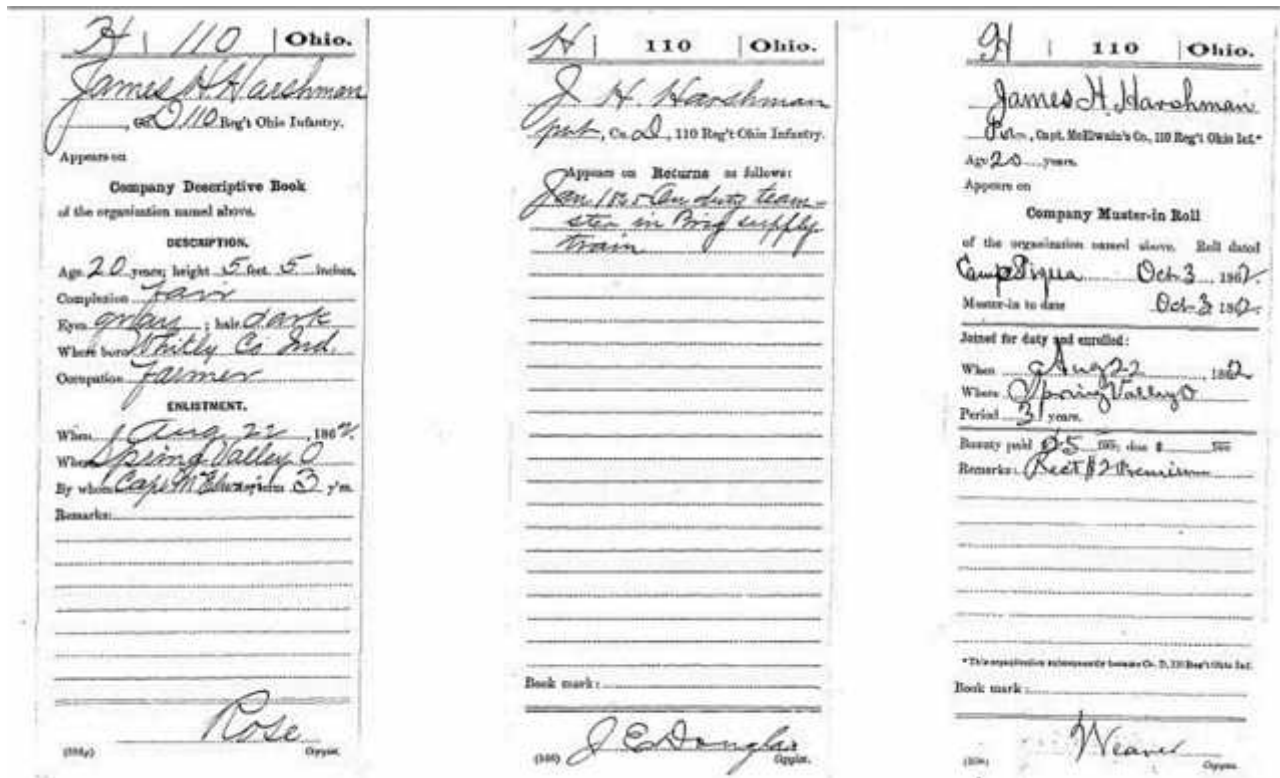 H | 110 | Ohio.
James H Harshman
, Co. D, 110 Reg't Ohio Infantry.
Appears on
Company Descriptive Book
of the organization named above.
DESCRIPTION.
Age 20 years; height 5 feet 5 inches.
Complexion Fair
Eyes gray ; hair dark
Where born Whitly Co Ind.
Occupation Farmer
ENLISTMENT.
When Aug 22 , 1862.
Where Spring Valley O
By whom Capt McElwain term 3 y'rs.
Remarks:
Rose
Copyist.
H | 110 | Ohio.
J. H. Harshman
pvt, Co. D, 110 Reg't Ohio Infantry.
Appears on Returns as follows:
Jan 1865 On duty team-
ster in Brig supply
train
Book mark:
J E Douglas
Copyist.
H | 110 | Ohio.
James H. Harshman
, Capt. McElwain's Co., 110 Reg't Ohio Inf.*
Age 20 years.
Appears on
Company Muster-in Roll
of the organization named above. Roll dated
Camp Piqua Oct 3, 1862.
Muster-in to date Oct 3, 1862.
Joined for duty and enrolled:
When Aug 22 , 1862
Where Spring Valley O
Period 3 years.
Bounty paid $25 ; due $
Remarks: Rect $2 Premium
*This organization subsequently became Co. D, 110 Reg't Ohio Inf.
Book mark:
Weaver
Copyist.